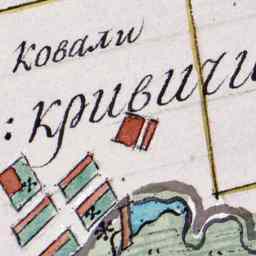 ковали
: кривичи